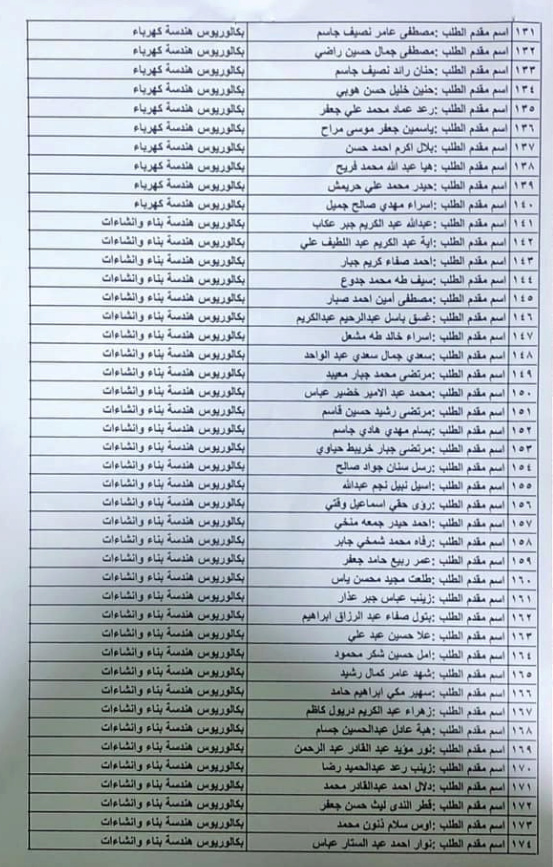 ١٣١ اسم مقدم الطلب :مصطفى عامر نصيف جاسم بكالوريوس هندسة كهرباء
١٣٢ اسم مقدم الطلب :مصطفى جمال حسين راضي بكالوريوس هندسة كهرباء
١٣٣ اسم مقدم الطلب :حنان رائد نصيف جاسم بكالوريوس هندسة كهرباء
١٣٤ اسم مقدم الطلب :حنين خليل حسن هوبي بكالوريوس هندسة كهرباء
١٣٥ اسم مقدم الطلب :رعد عماد محمد علي جعفر بكالوريوس هندسة كهرباء
١٣٦ اسم مقدم الطلب :ياسمين جعفر موسى مراح بكالوريوس هندسة كهرباء
١٣٧ اسم مقدم الطلب :بلال اكرم احمد حسن بكالوريوس هندسة كهرباء
١٣٨ اسم مقدم الطلب :هيا عبد الله محمد فريح بكالوريوس هندسة كهرباء
١٣٩ اسم مقدم الطلب :حيدر محمد علي حريمش بكالوريوس هندسة كهرباء
١٤٠ اسم مقدم الطلب :اسراء مهدي صالح جميل بكالوريوس هندسة كهرباء
١٤١ اسم مقدم الطلب :عبدالله عبد الكريم جبر عكاب بكالوريوس هندسة بناء وانشاءات
١٤٢ اسم مقدم الطلب :اية عبد الكريم عبد اللطيف علي بكالوريوس هندسة بناء وانشاءات
١٤٣ اسم مقدم الطلب :احمد صفاء كريم جبار بكالوريوس هندسة بناء وانشاءات
١٤٤ اسم مقدم الطلب :سيف طه محمد جدوع بكالوريوس هندسة بناء وانشاءات
١٤٥ اسم مقدم الطلب :مصطفى أمين احمد صبار بكالوريوس هندسة بناء وانشاءات
١٤٦ اسم مقدم الطلب :غسق باسل عبدالرحيم عبدالكريم بكالوريوس هندسة بناء وانشاءات
١٤٧ اسم مقدم الطلب :اسراء خالد طه مشعل بكالوريوس هندسة بناء وانشاءات
١٤٨ اسم مقدم الطلب :سعدي جمال سعدي عبد الواحد بكالوريوس هندسة بناء وانشاءات
١٤٩ اسم مقدم الطلب :مرتضى محمد جبار معيبد بكالوريوس هندسة بناء وانشاءات
١٥٠ اسم مقدم الطلب :محمد عبد الامير خضير عباس بكالوريوس هندسة بناء وانشاءات
١٥١ اسم مقدم الطلب :مرتضى رشيد حسين قاسم بكالوريوس هندسة بناء وانشاءات
١٥٢ اسم مقدم الطلب :بسام مهدي هادي جاسم بكالوريوس هندسة بناء وانشاءات
١٥٣ اسم مقدم الطلب :مرتضى جبار خريبط حياوي بكالوريوس هندسة بناء وانشاءات
١٥٤ اسم مقدم الطلب :رسل سنان جواد صالح بكالوريوس هندسة بناء وانشاءات
١٥٥ اسم مقدم الطلب :اسيل نبيل نجم عبدالله بكالوريوس هندسة بناء وانشاءات
١٥٦ اسم مقدم الطلب :رؤى حقي اسماعيل وقتي بكالوريوس هندسة بناء وانشاءات
١٥٧ اسم مقدم الطلب :احمد حيدر جمعه منخي بكالوريوس هندسة بناء وانشاءات
١٥٨ اسم مقدم الطلب :رفاه محمد شمخي جابر بكالوريوس هندسة بناء وانشاءات
١٥٩ اسم مقدم الطلب :عمر ربيع حامد جعفر بكالوريوس هندسة بناء وانشاءات
١٦٠ اسم مقدم الطلب :طلعت مجيد محسن ياس بكالوريوس هندسة بناء وانشاءات
١٦١ اسم مقدم الطلب :زينب عباس جبر عذار بكالوريوس هندسة بناء وانشاءات
١٦٢ اسم مقدم الطلب :بتول صفاء عبد الرزاق ابراهيم بكالوريوس هندسة بناء وانشاءات
١٦٣ اسم مقدم الطلب :علا حسين عبد علي بكالوريوس هندسة بناء وانشاءات
١٦٤ اسم مقدم الطلب :امل حسين شكر محمود بكالوريوس هندسة بناء وانشاءات
١٦٥ اسم مقدم الطلب :شهد عامر كمال رشيد بكالوريوس هندسة بناء وانشاءات
١٦٦ اسم مقدم الطلب :سهير مكي ابراهيم حامد بكالوريوس هندسة بناء وانشاءات
١٦٧ اسم مقدم الطلب :زهراء عبد الكريم دريول كاظم بكالوريوس هندسة بناء وانشاءات
١٦٨ اسم مقدم الطلب :هبة عادل عبدالحسين جسام بكالوريوس هندسة بناء وانشاءات
١٦٩ اسم مقدم الطلب :نور مؤيد عبد القادر عبد الرحمن بكالوريوس هندسة بناء وانشاءات
١٧٠ اسم مقدم الطلب :زينب رعد عبدالحميد رضا بكالوريوس هندسة بناء وانشاءات
١٧١ اسم مقدم الطلب :دلال احمد عبدالقادر محمد بكالوريوس هندسة بناء وانشاءات
١٧٢ اسم مقدم الطلب :قطر الندى ليث حسن جعفر بكالوريوس هندسة بناء وانشاءات
١٧٣ اسم مقدم الطلب :اوس سلام ذنون محمد بكالوريوس هندسة بناء وانشاءات
١٧٤ اسم مقدم الطلب :نوار احمد عبد الستار عباس بكالوريوس هندسة بناء وانشاءات